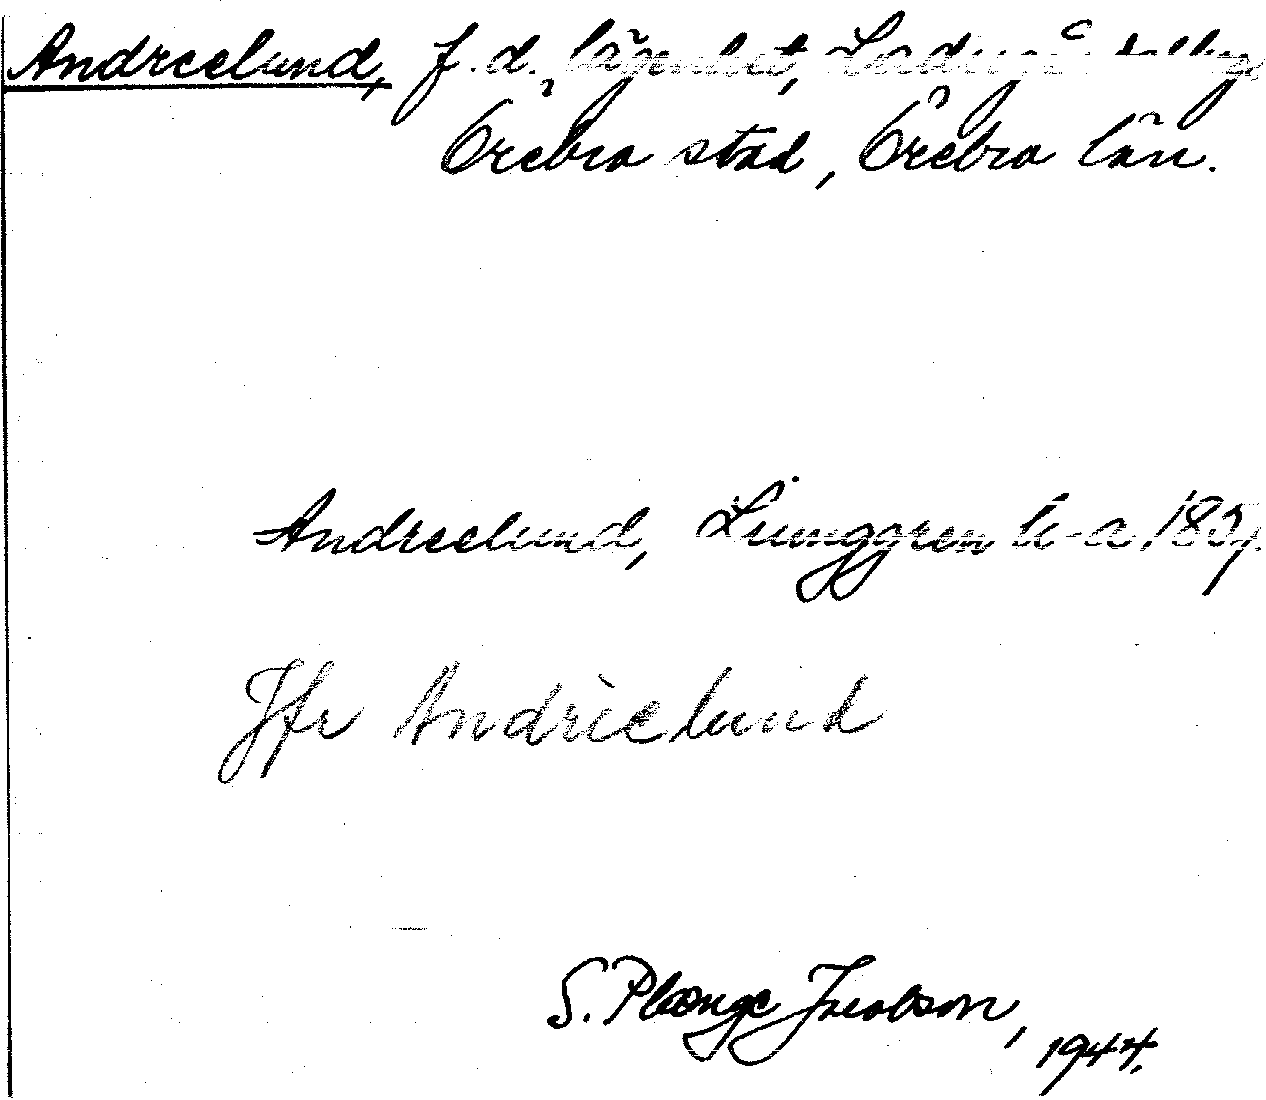 Andreelund, f.d. lägenhet,
Örebro stad, Örebro län.
Andreelund, Ljunggren h-a 1857.
Jfr Andrielund
S. Plænge Jacobson,
1944.